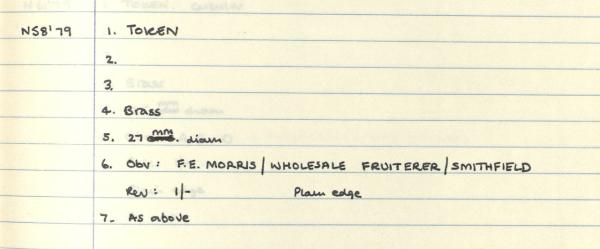 N58'79 1. TOKEN
2.
3.
4. Brass
5. 27 mm. diam
6. Obv: F.E. MORRIS/WHOLESALE FRUITERER/SMITHFIELD
Rev: 1/- Plain edge
7. As above